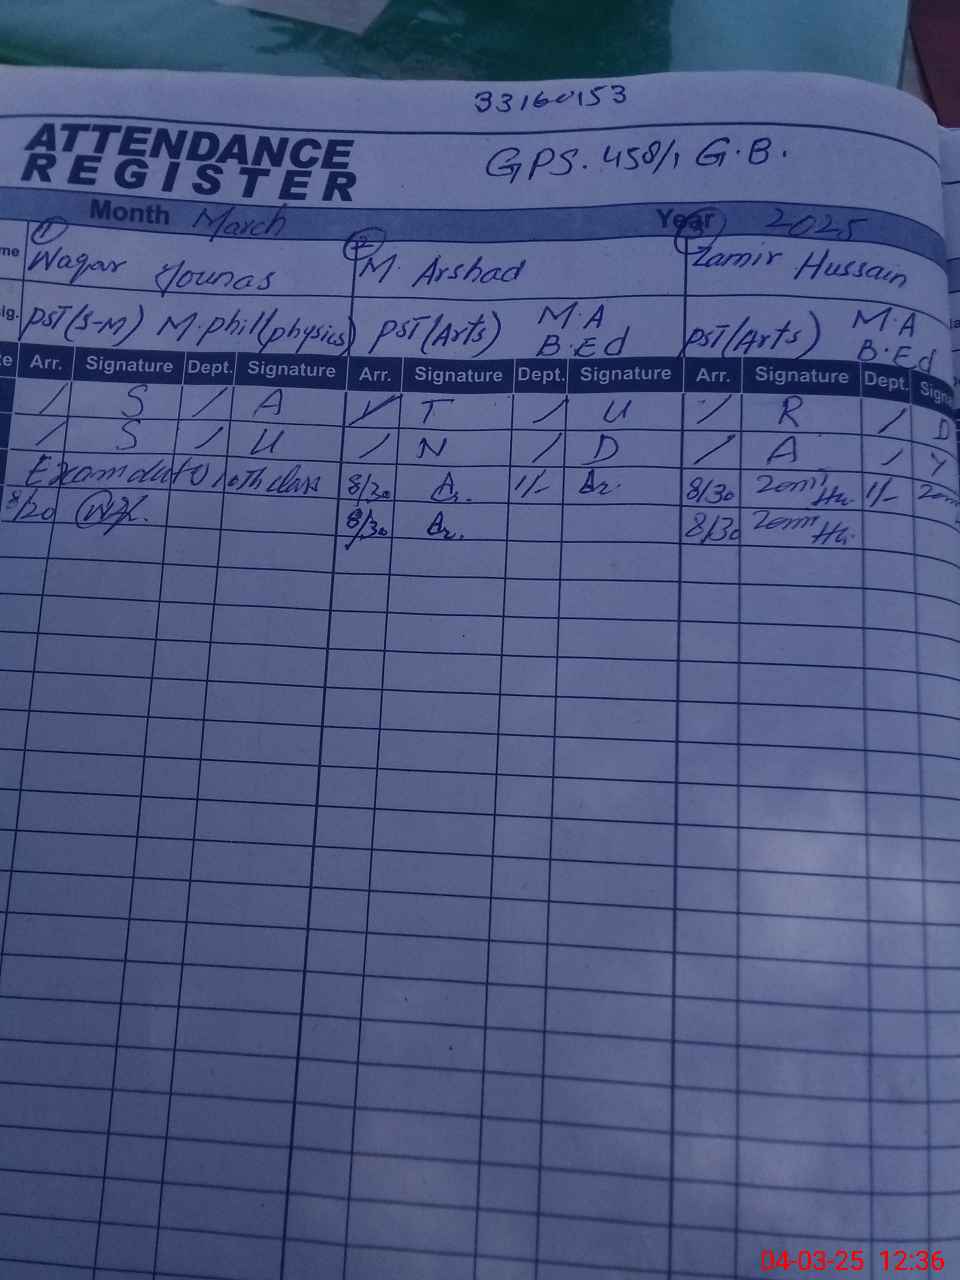 33160153
ATTENDANCE
REGISTER
GPS. 458/1 G.B.
Month March Year 2025
me ① Waqar Younas ② M. Arshad Zamir Hussain
ig. PST(S-M) M.phil(physics) PST(Arts) M.A B.Ed PST(Arts) M.A B.Ed
e Arr. Signature Dept. Signature Arr. Signature Dept. Signature Arr. Signature Dept. Signa
/ S / A / T / U / R / D
/ S / U / N / D / A / Y
Exam duty 10th class 8/30 Ar. 1/- Ar. 8/30 Zamir Hu. 1/-
8/20 8/30 Ar. 8/30 Zamir Hu.
04-03-25 12:36